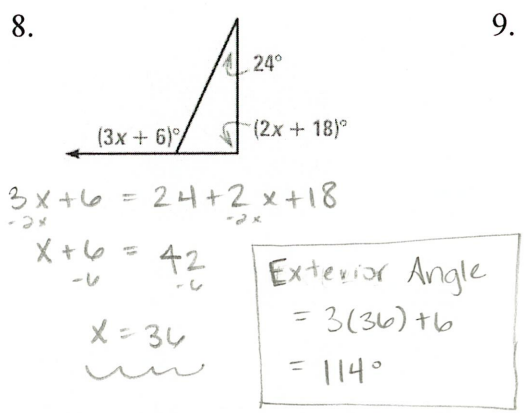 8.
9.
24°
(3x + 6)°
(2x + 18)°
3x+6 = 24+2x+18
-2x -2x
x+6 = 42
-6 -6
x = 36
Exterior Angle
= 3(36)+6
= 114°